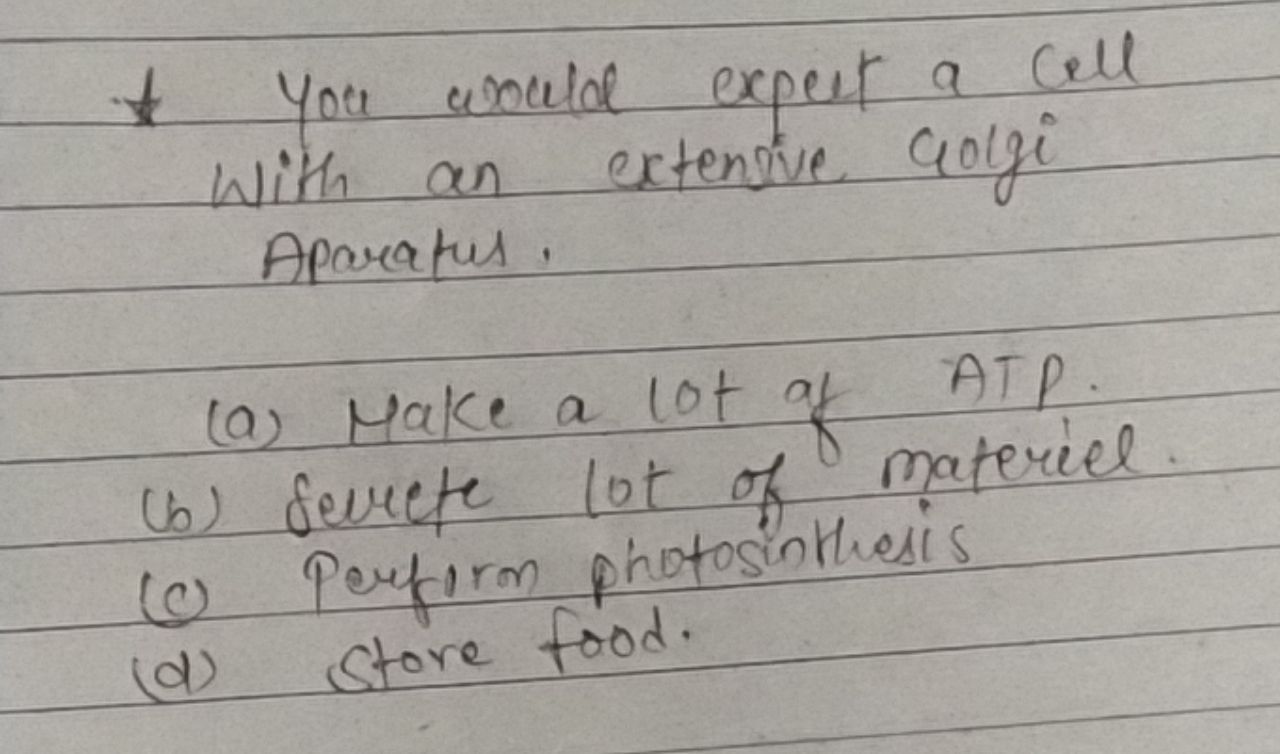 * You would expect a Cell
With an extensive Golgi
Aparatus.
(a) Make a lot of ATP.
(b) Secrete lot of materiel.
(c) Perform photosinthesis
(d) Store food.